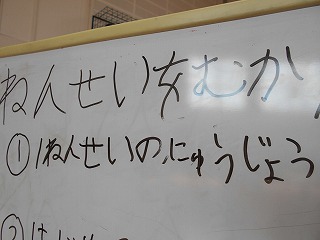 ねんせいをむか
①1ねんせいの、にゅうじょう
②はじめの